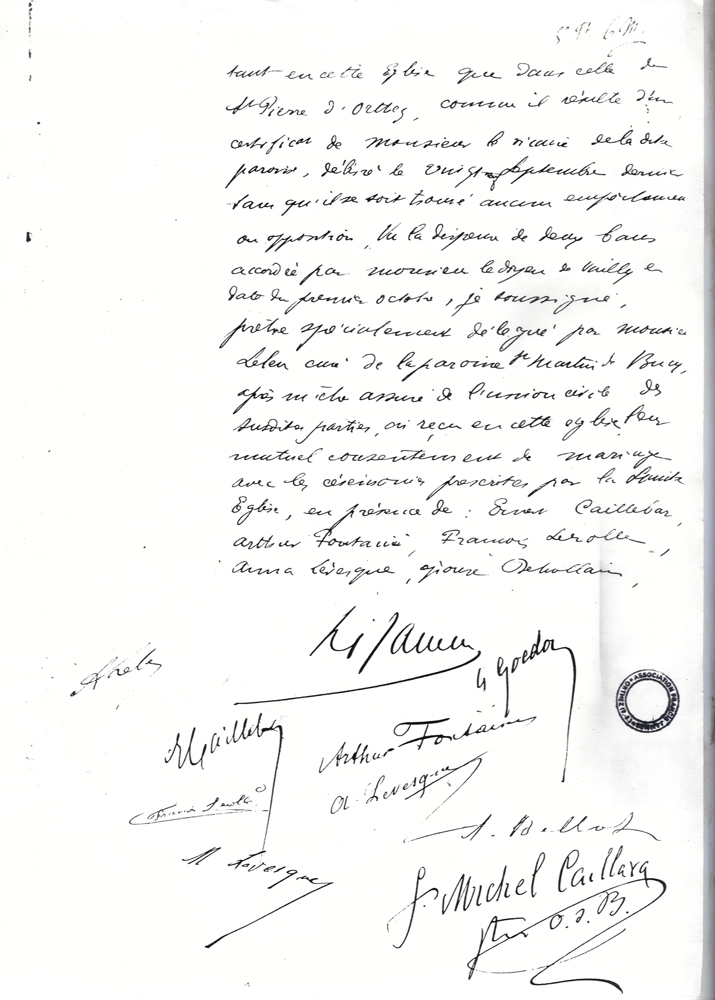 tant en cette Eglise que dans celle de
St Pierre d'Orthez, comme il résulte d'un
certificat de monsieur le vicaire de la dite
paroisse, délivré le vingt Septembre dernier
sans qu'il se soit trouvé aucun empêchement
ou opposition, Vu la dispense de deux bans
accordée par monsieur le doyen de Vailly en
date du premier octobre, je soussigné,
prêtre spécialement délégué par monsieur
Leleu curé de la paroisse St Martin de Bucy,
après m'être assuré de l'union civile des
susdites parties, ai reçu en cette eglise leur
mutuel consentement de mariage
avec les cérémonies prescrites par la Sainte
Eglise, en présence de : Ernest Caillebar,
Arthur Fontaine, Francois Lerolle,
Anna Lévesque, épouse
G Goedor
Caillebar
Arthur Fontaine
A Levesque
M Levesque
f. Michel Caillava
O.S.B.
ASSOCIATION FRANCIS JAMMES ORTHEZ